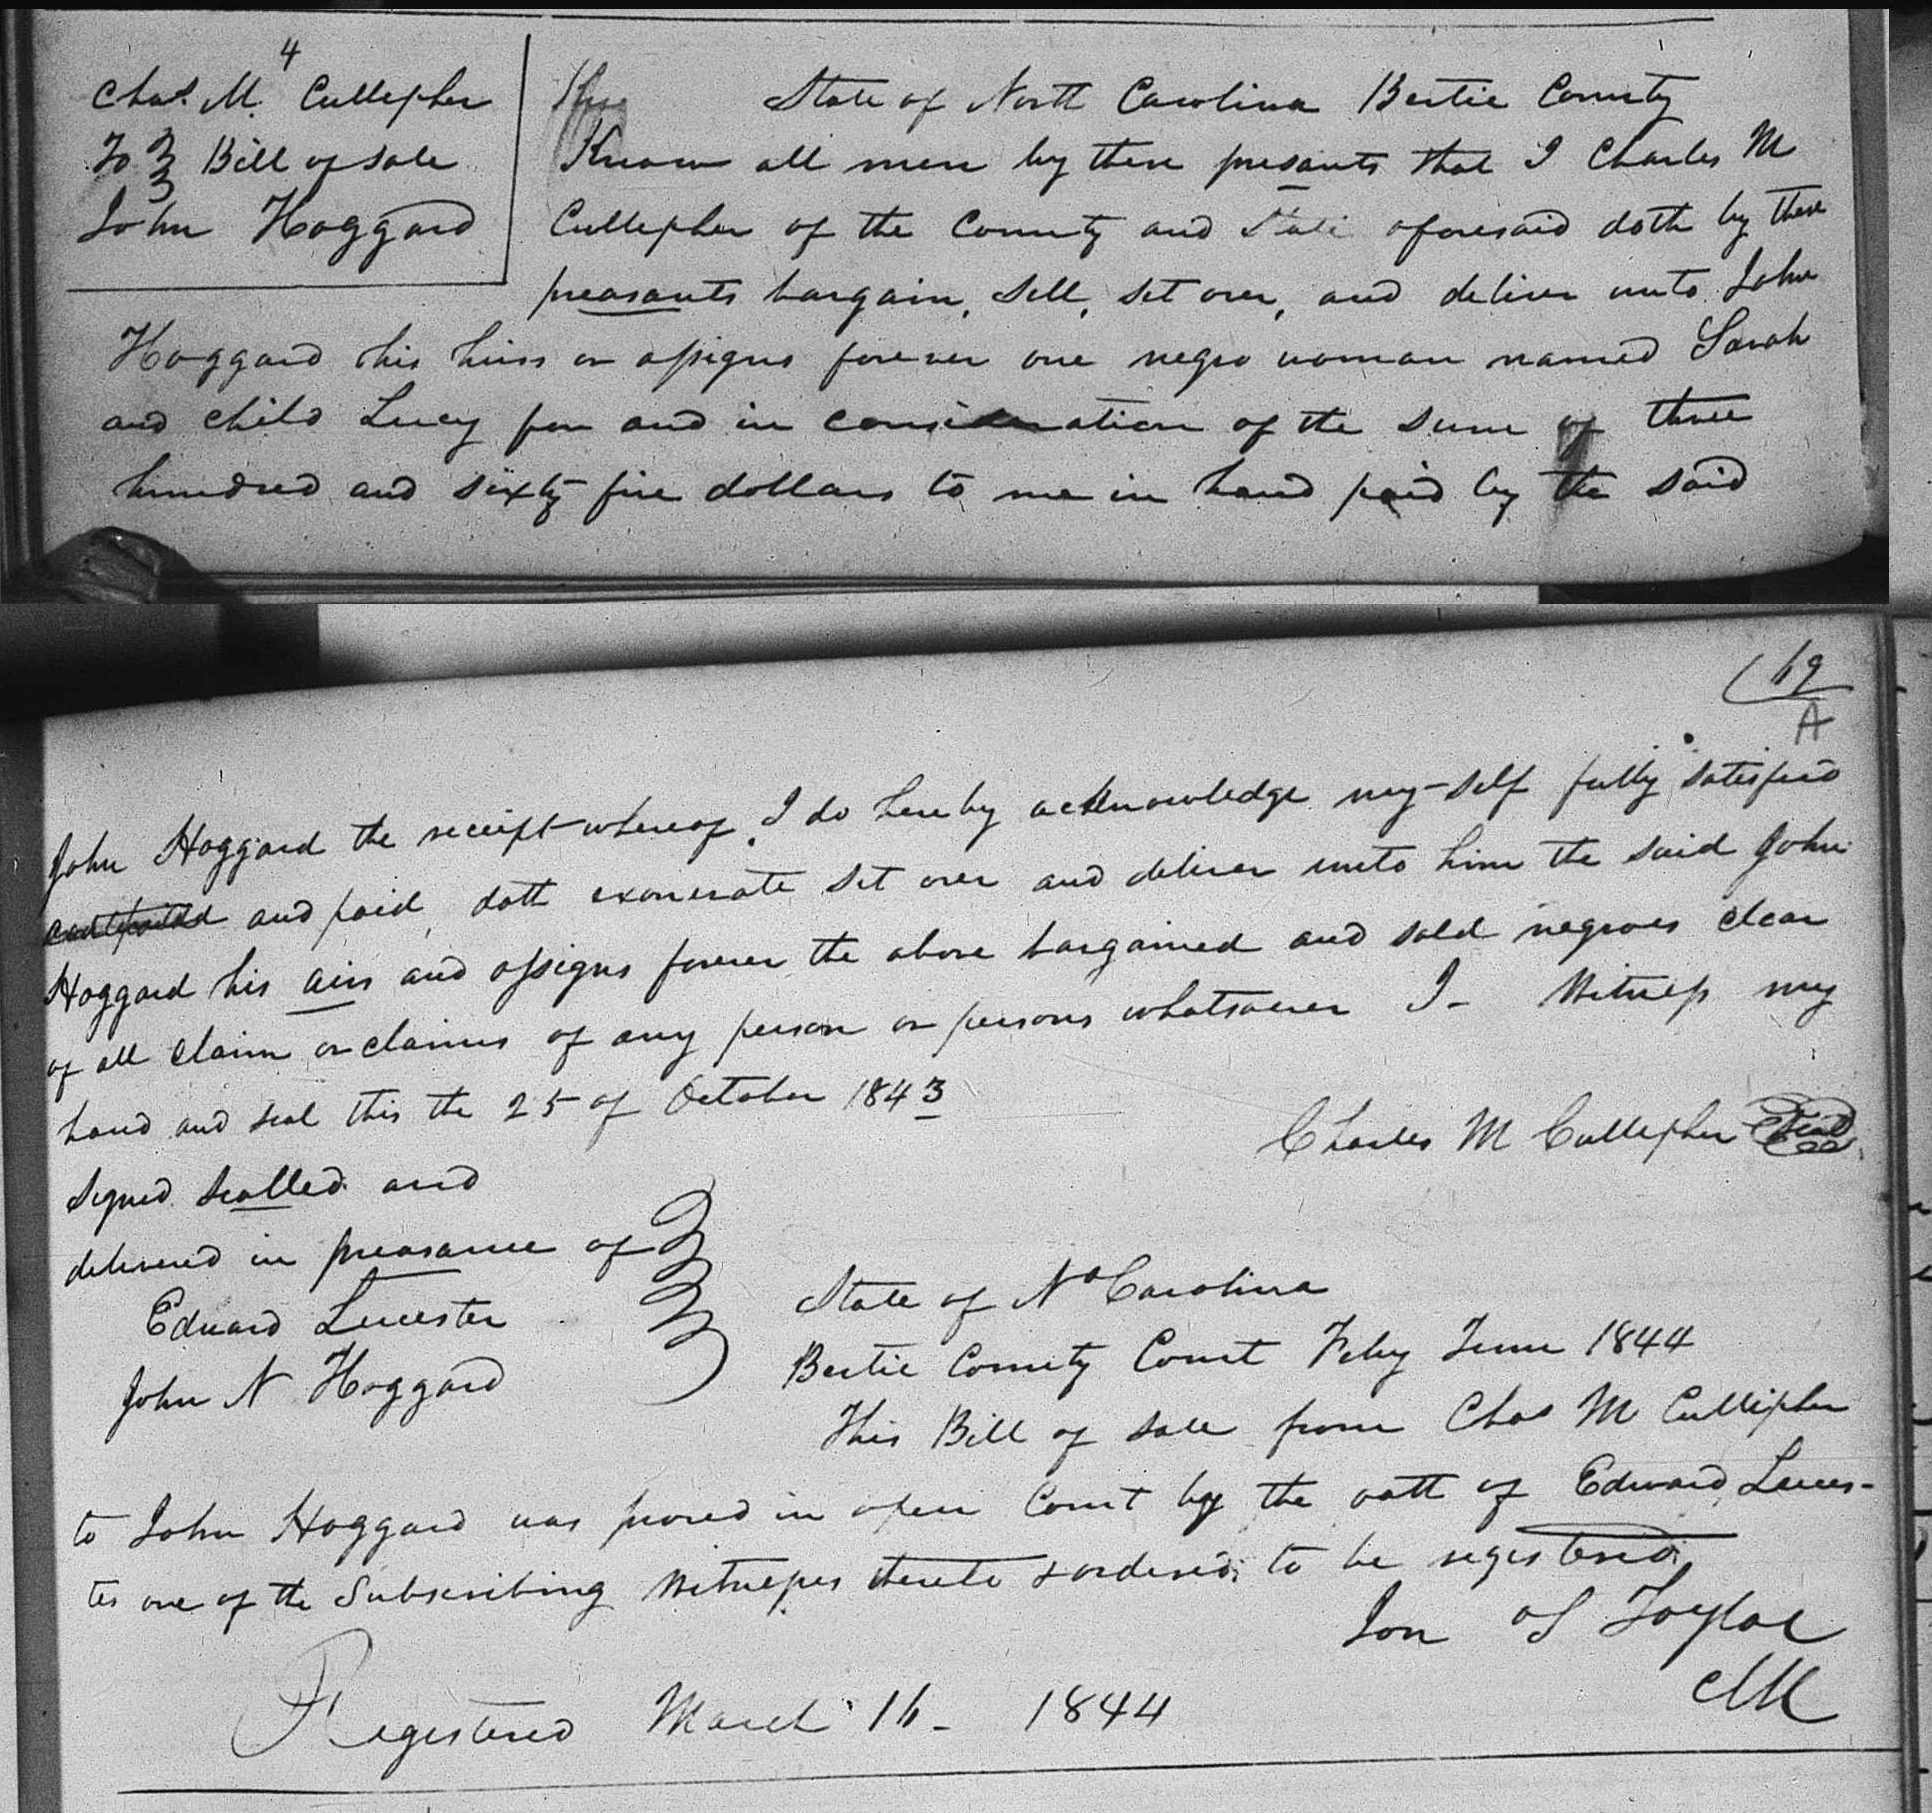 4
Chas. M. Cullepher
To Bill of sale
John Hoggard
State of North Carolina Bertie County
Know all men by these presants that I Charles M
Cullepher of the County and State aforesaid doth by these
preasants bargain, sell, set over, and deliver unto John
Hoggard his hirs or assigns forever one negro woman named Sarah
and child Lucy for and in consideration of the sum of three
hundred and sixty five dollars to me in hand paid by the said
69
A
John Hoggard the receipt whereof, I do hereby acknowledge my-self fully satisfied
and paid, doth exonerate set over and deliver unto him the said John
Hoggard his airs and assigns forever the above bargained and sold negroes clear
of all claim or claims of any person or persons whatsoever I- Witness my
hand and seal this the 25 of October 1843
Charles M Cullepher Seal
Signed sealled and
delivered in preasance of
Edward Lucester
John N Hoggard
State of No Carolina
Bertie County Court Feby Term 1844
This Bill of sale from Chas M Cullipher
to John Hoggard was proved in open Court by the oath of Edward Luces-
ter one of the Subscribing Witnesses thereto & ordered to be registered
Jon S Taylor
Clk
Registered March 16- 1844